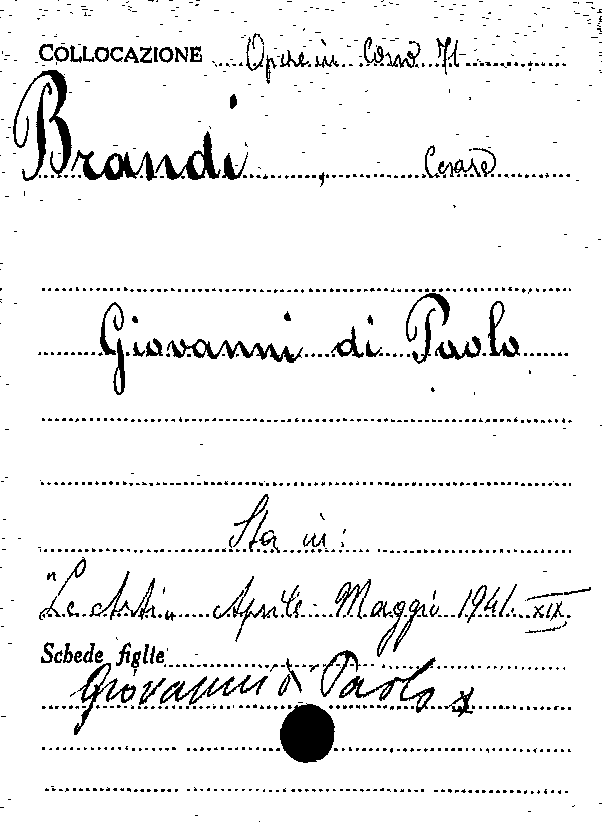 COLLOCAZIONE Opere in Corso 71
Brandi, Cesare
Giovanni di Paolo
Sta in:
"Le Arti" Aprile-Maggio 1941. XIX
Schede figlie
Giovanni di Paolo